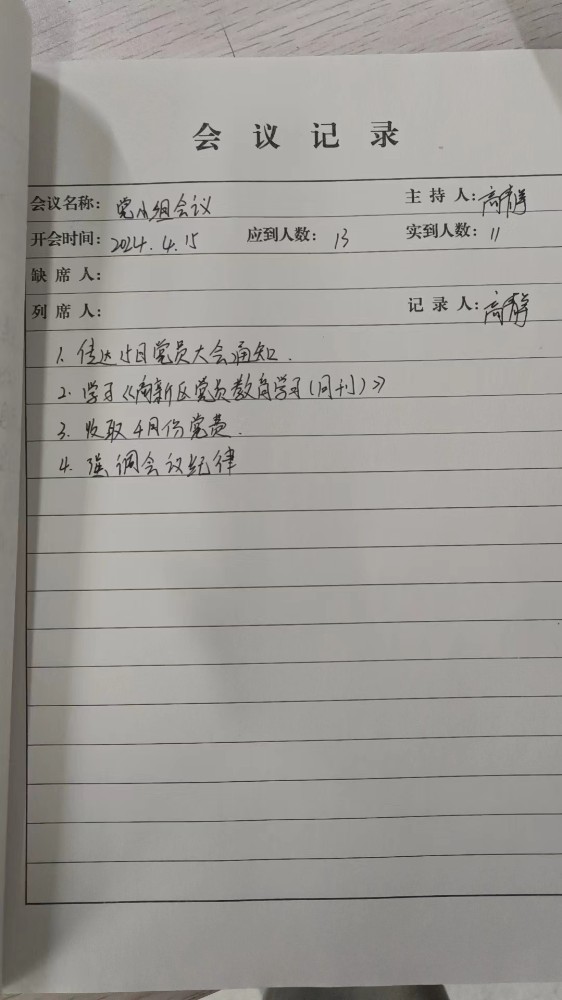 会议记录
会议名称：党小组会议 主持人：高静
开会时间：2024.4.15 应到人数：13 实到人数：11
缺席人：
列席人： 记录人：高静
1. 传达15日党员大会通知.
2. 学习《高新区党员教育学习(周刊)》
3. 收取4月份党费.
4. 强调会议纪律